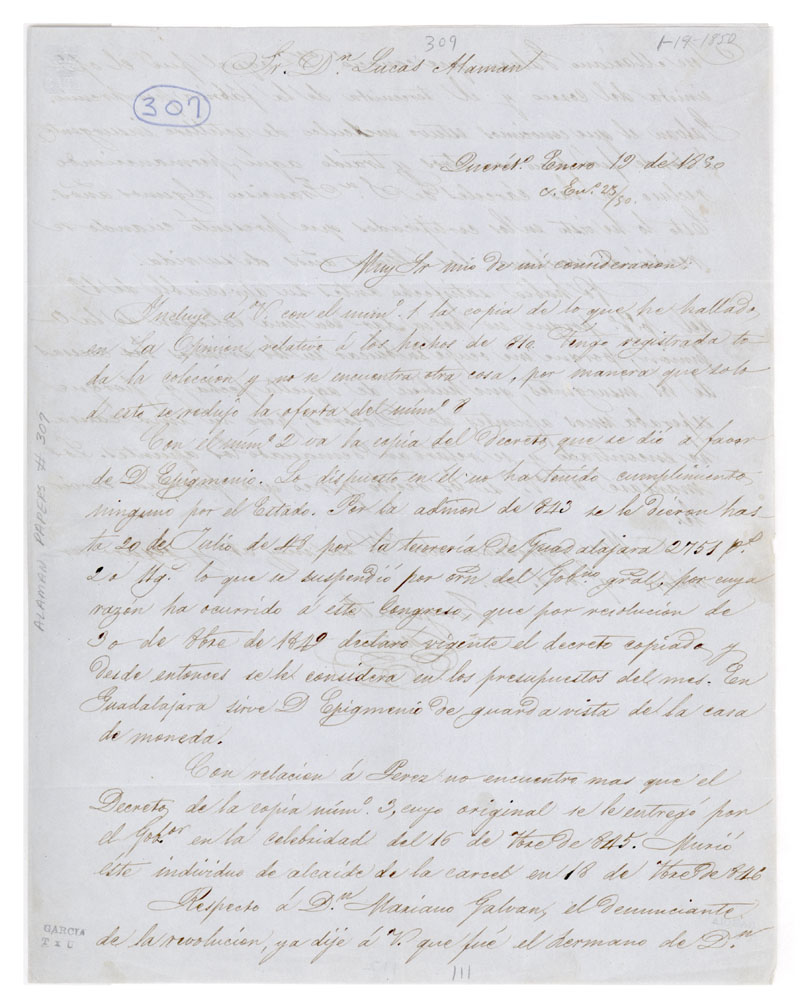 309
1-19-1850
Sr. Dn. Lucas Alaman
307
Querét.o Enero 19 de 1850
c. En.o 23/50.
Muy Sr mio de mi consideracion:
Incluyo á V. con el núm.o 1 la copia de lo que he hallado
en La Opinion relativo á los hechos de 810. Tengo registrada to-
da la coleccion y no se encuentra otra cosa, por manera que solo
á esto se redujo la oferta del núm.o 8
Con el núm.o 2 va la copia del Decreto que se dió a favor
de D Epigmenio. Lo dispuesto en él no ha tenido cumplimiento
ninguno por el Estado. Por la admon de 843 se le dieron has-
ta 20 de Julio de 48 por la tesorería de Guadalajara 2751 p.s
2 lo que se suspendió por orn del Gob.no gral, por cuya
razon ha ocurrido a este Congreso, que por resolucion de
30 de de 1849 declaró vigente el decreto copiado y
desde entonces se le considera en los presupuestos del mes. En
Guadalajara sirve D Epigmenio de guarda vista de la casa
de moneda.
Con relacion á Perez no encuentro mas que el
Decreto de la copia núm.o 3, cuyo original se le entregó por
el Gob.or en la celebridad del 16 de de 845. Murió
éste individuo de alcaide de la carcel en 18 de de 846
Respecto á D.n Mariano Galvan, el denunciante
de la revolucion, ya dije á V. que fué el hermano de D.n
ALAMAN PAPERS # 307
GARCIA
111